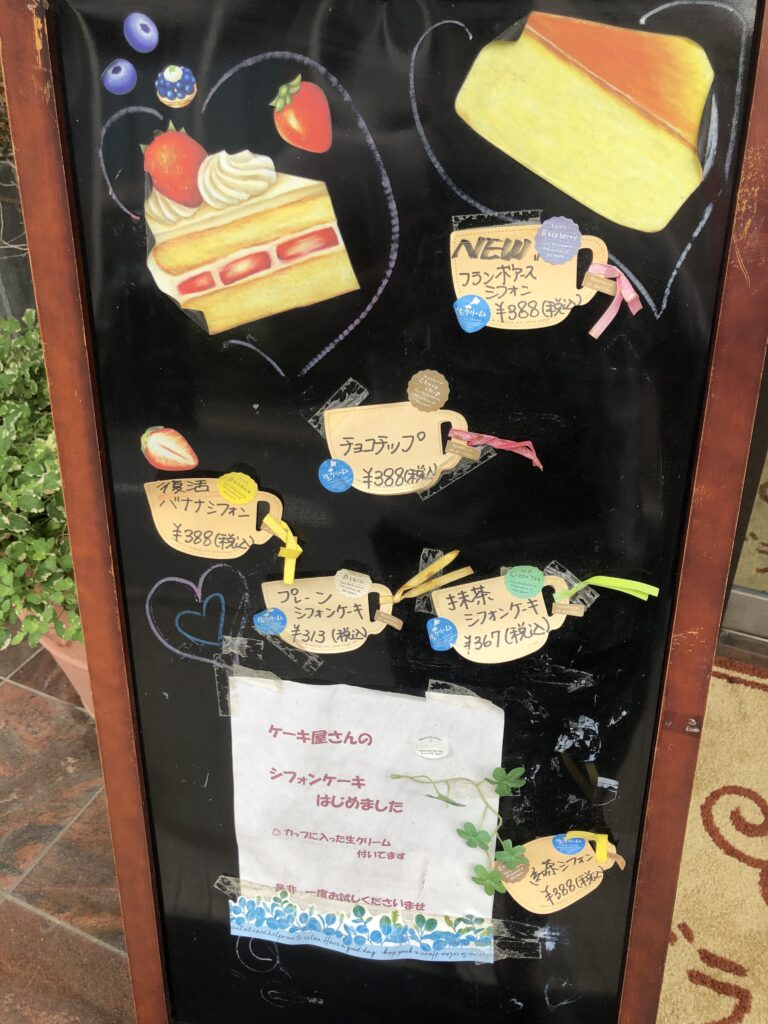 NEW
Raspberry
フランボアーズ
シフォン
¥388(税込)
生クリーム
Choco
chip
チョコチップ
¥388(税込)
生クリーム
復活
バナナシフォン
¥388(税込)
Plain
プレーン
シフォンケーキ
¥313(税込)
生クリーム
Green Tea
抹茶
シフォンケーキ
¥367(税込)
生クリーム
ケーキ屋さんの
シフォンケーキ
はじめました
カップに入った生クリーム
付いてます
是非一度お試しくださいませ
生クリーム
紅茶シフォン
¥388(税込)